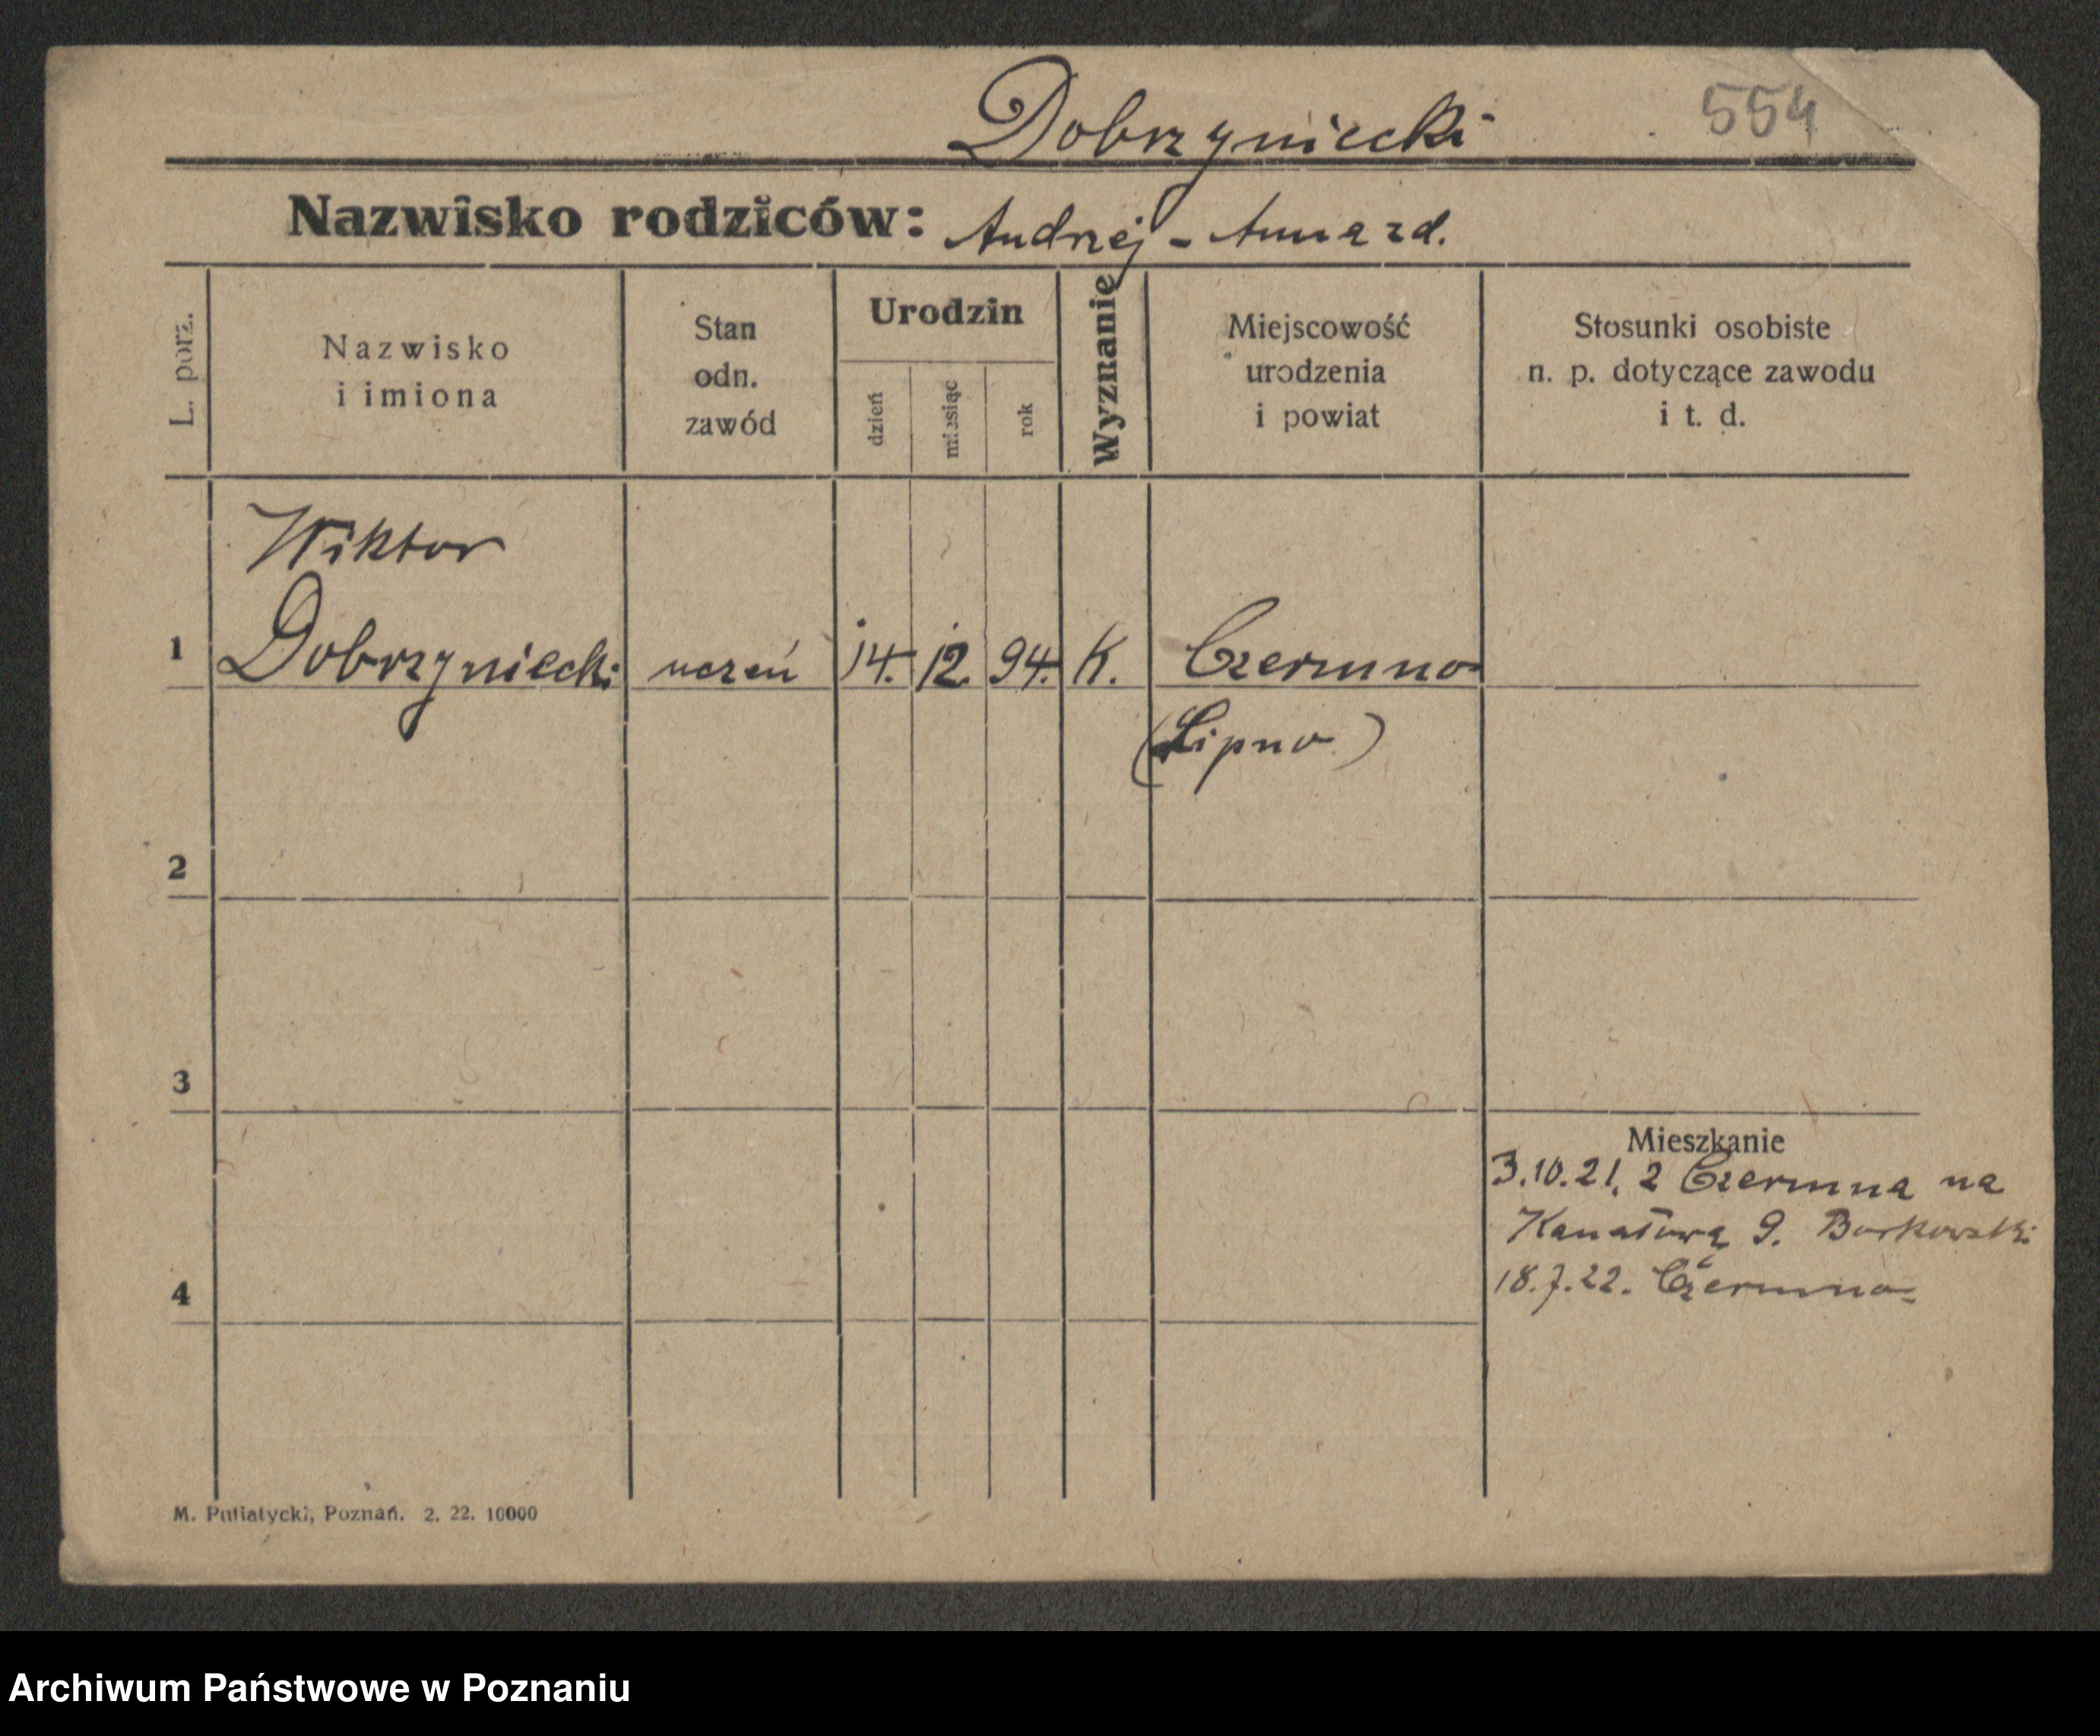 Dobrzyniecki
554
Nazwisko rodziców: Andrzej - Anna zd.
L. porz.
Nazwisko
i imiona
Stan
odn.
zawód
Urodzin
dzień
miesiąc
rok
Wyznanie
Miejscowość
urodzenia
i powiat
Stosunki osobiste
n. p. dotyczące zawodu
i t. d.
Wiktor
1 Dobrzyniecki uczeń 14. 12. 94. K. Czermno
(Lipno)
2
3
Mieszkanie
3.10.21. z Czermna na
Kanałową 9. Borkowski
18.7.22. Czermno
4
M. Putiatycki, Poznań. 2. 22. 10000
Archiwum Państwowe w Poznaniu